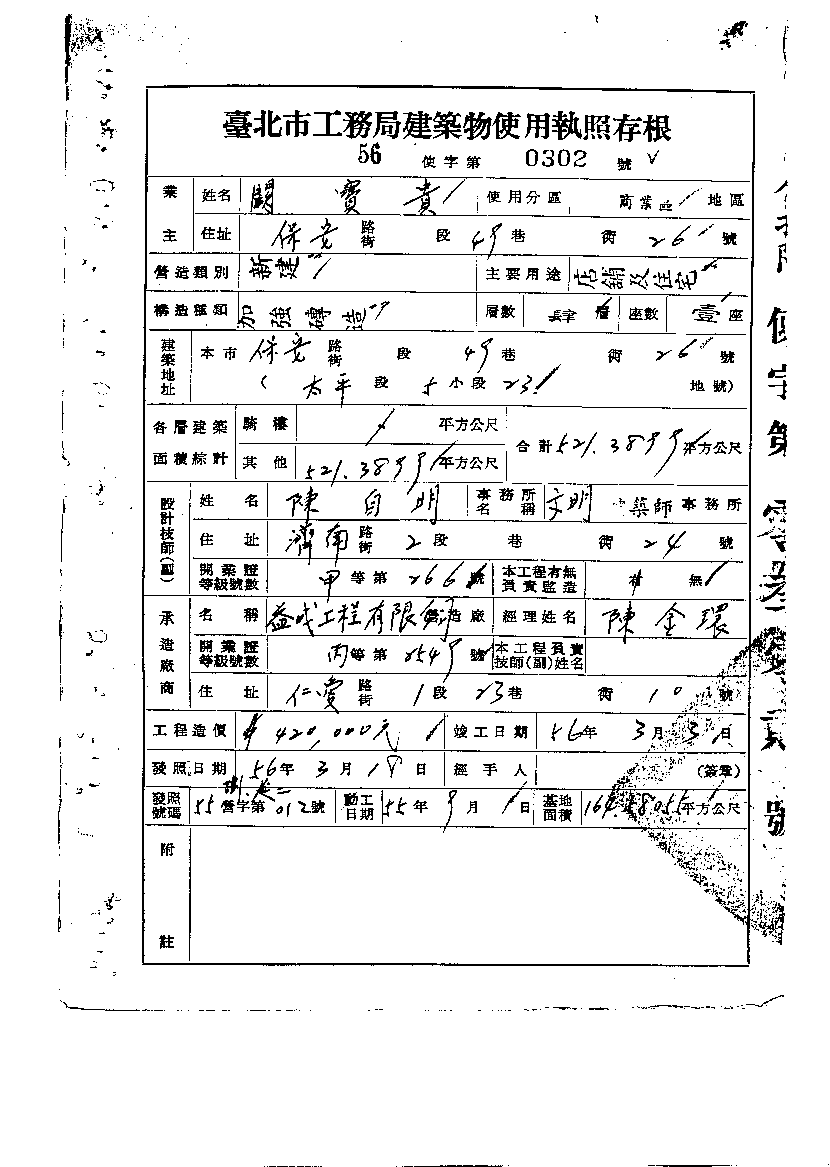 臺北市工務局建築物使用執照存根
56 使字第 0302 號
業主 姓名 闕寶貴 使用分區 商業區 地區
住址 保安 路街 段 49 巷 衖 26 號
營造類別 新建 主要用途 店鋪及住宅
構造種類 加強磚造 層數 肆 層 座數 壹 座
建築地址 本市 保安 路街 段 49 巷 衖 26 號
( 太平 段 5 小段 23 地號)
各層建築面積綜計 騎樓 平方公尺 合計 521.3899 平方公尺
其他 521.3899 平方公尺
設計技師(副) 姓名 陳自明 事務所名稱 文明 建築師 事務所
住址 濟南 路街 2 段 巷 衖 24 號
開業證等級號數 甲 等第 266 號 本工程有無負責監造 無
承造廠商 名稱 益成工程有限 營造廠 經理姓名 陳金環
開業證等級號數 丙 等第 2549 號 本工程負責技師(副)姓名
住址 仁愛 路街 1 段 23 巷 衖 10 號
工程造價 $420,000元 竣工日期 56 年 3 月 3 日
發照日期 56 年 3 月 18 日 經手人 (簽章)
發照號碼 55 營字第 012 號 動工日期 55 年 9 月 1 日 基地面積 平方公尺
附註
使字第 號